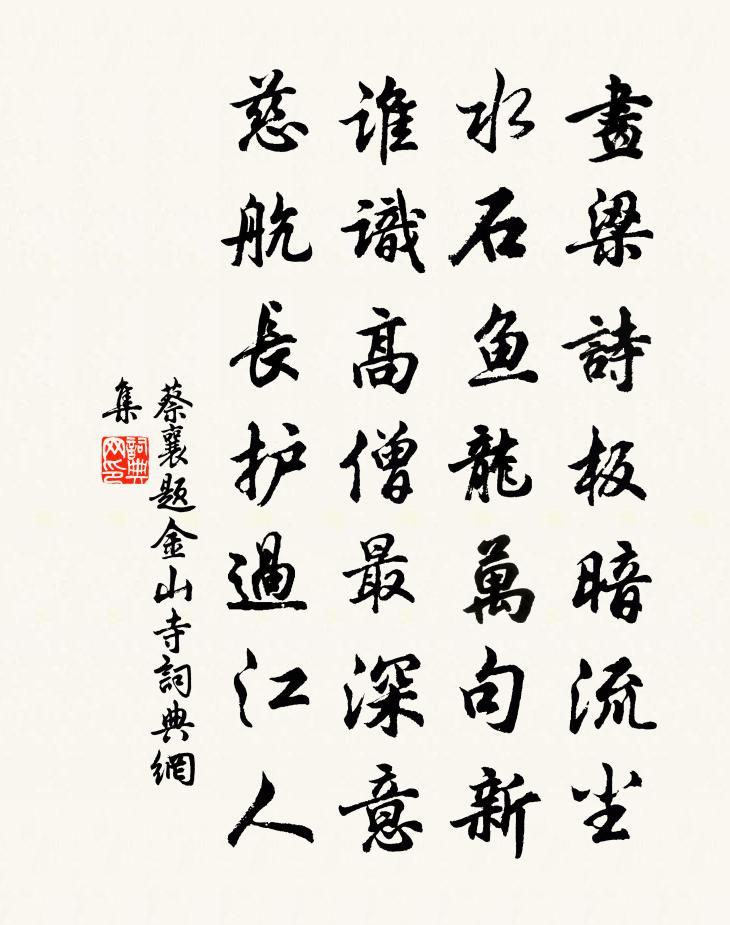 畫梁詩板暗流尘
水石鱼龍萬句新
谁識高僧最深意
慈航長护過江人
蔡襄题金山寺詞典網
集
詞典
网印